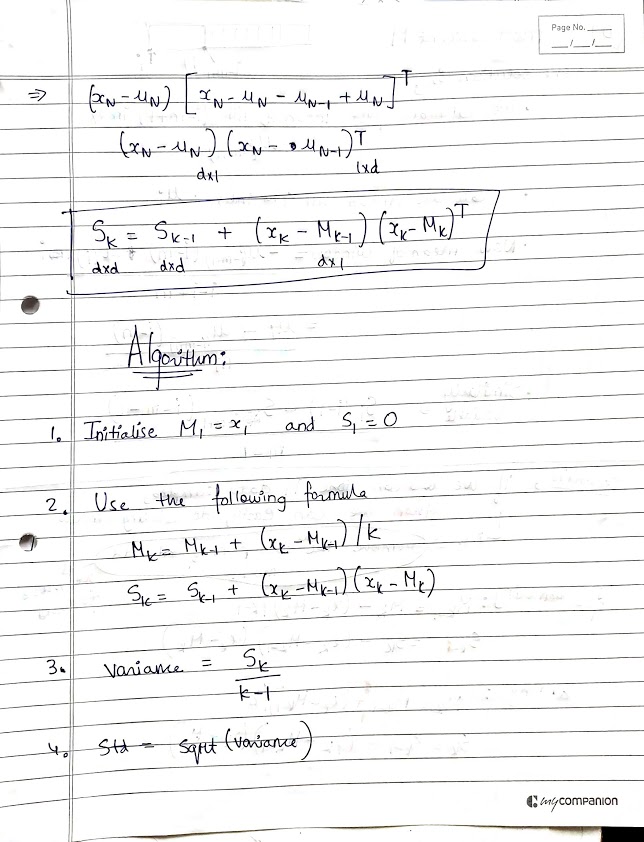 Page No.
__/__/__
⇒ (x_N - μ_N) [x_N - μ_N - μ_{N-1} + μ_N]^T
(x_N - μ_N) (x_N - μ_{N-1})^T
dx1 1xd
S_k = S_{k-1} + (x_k - M_{k-1}) (x_k - M_k)^T
dxd dxd dx1
Algorithm:
1. Initialise M_1 = x_1 and S_1 = 0
2. Use the following formula
M_k = M_{k-1} + (x_k - M_{k-1}) / k
S_k = S_{k-1} + (x_k - M_{k-1}) (x_k - M_k)
3. Variance = S_k / k-1
4. Std = Sqrt (variance)
mycompanion